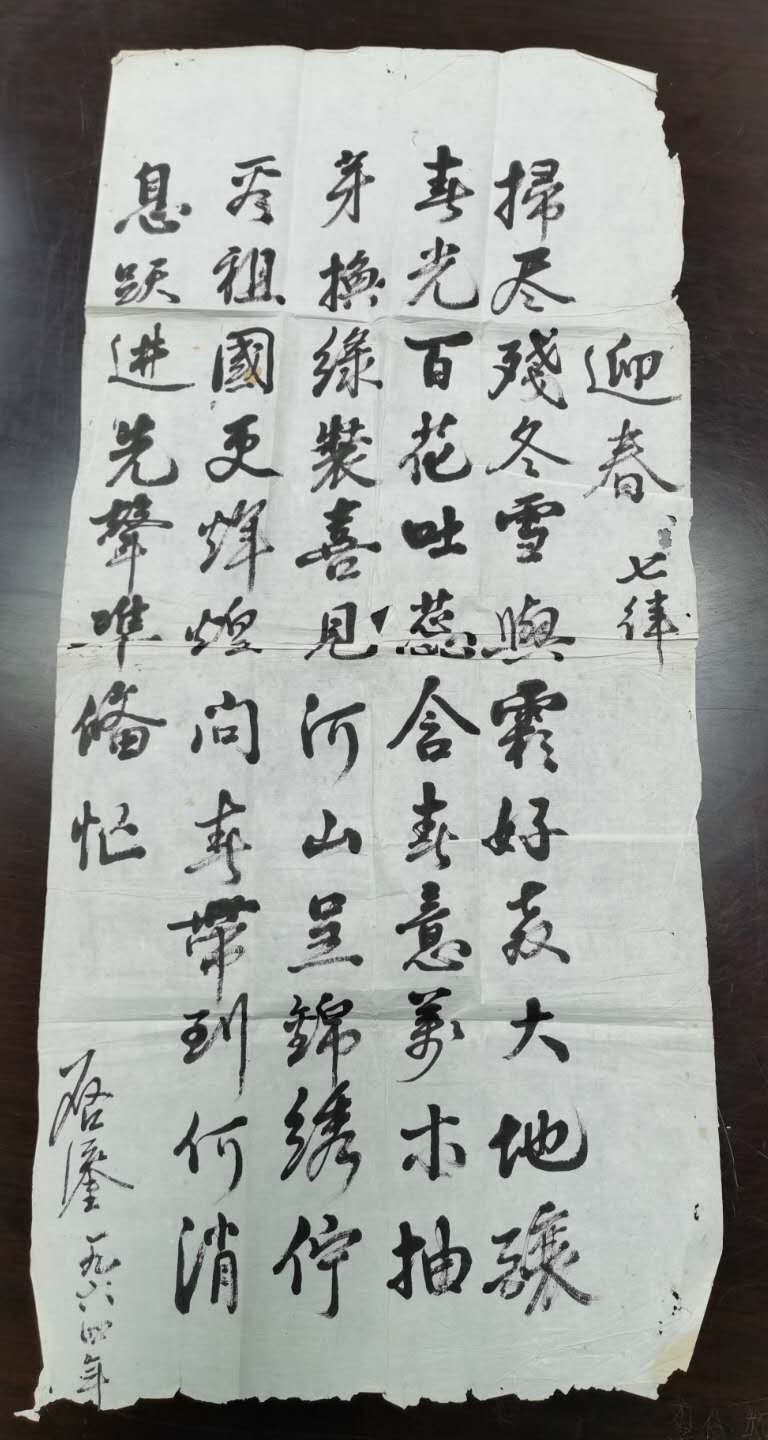 迎春 七律
掃尽殘冬雪與霜好教大地釀
春光百花吐蕊含春意萬木抽
芽換綠裝喜見河山呈錦绣佇
看祖國更輝煌问春帶到何消
息跃进先聲准備忙
启 一九六四年